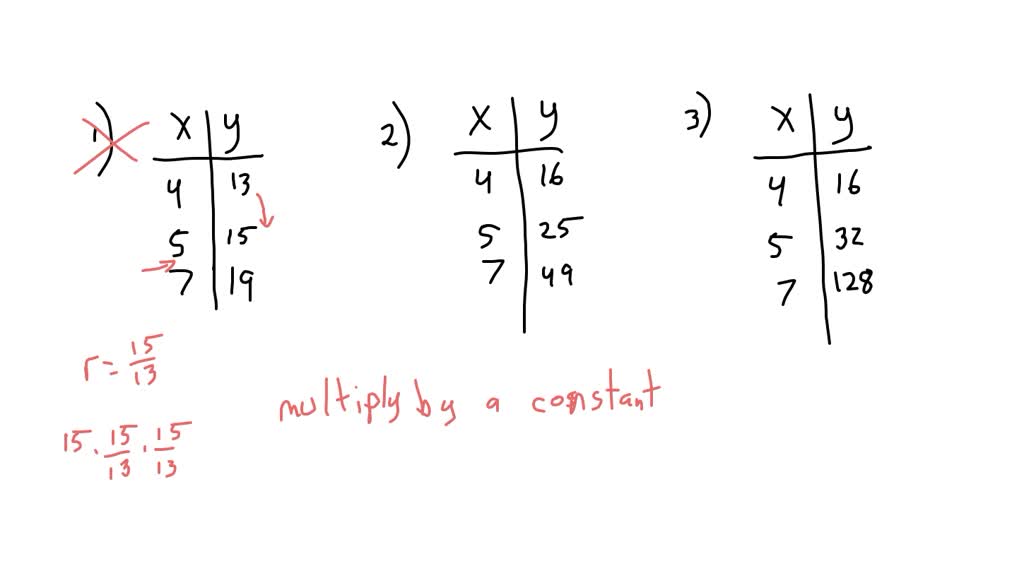 1) x y
4 13
5 15
7 19
2) x y
4 16
5 25
7 49
3) x y
4 16
5 32
7 128
r = 15/13
15 · 15/13 · 15/13
multiply by a constant